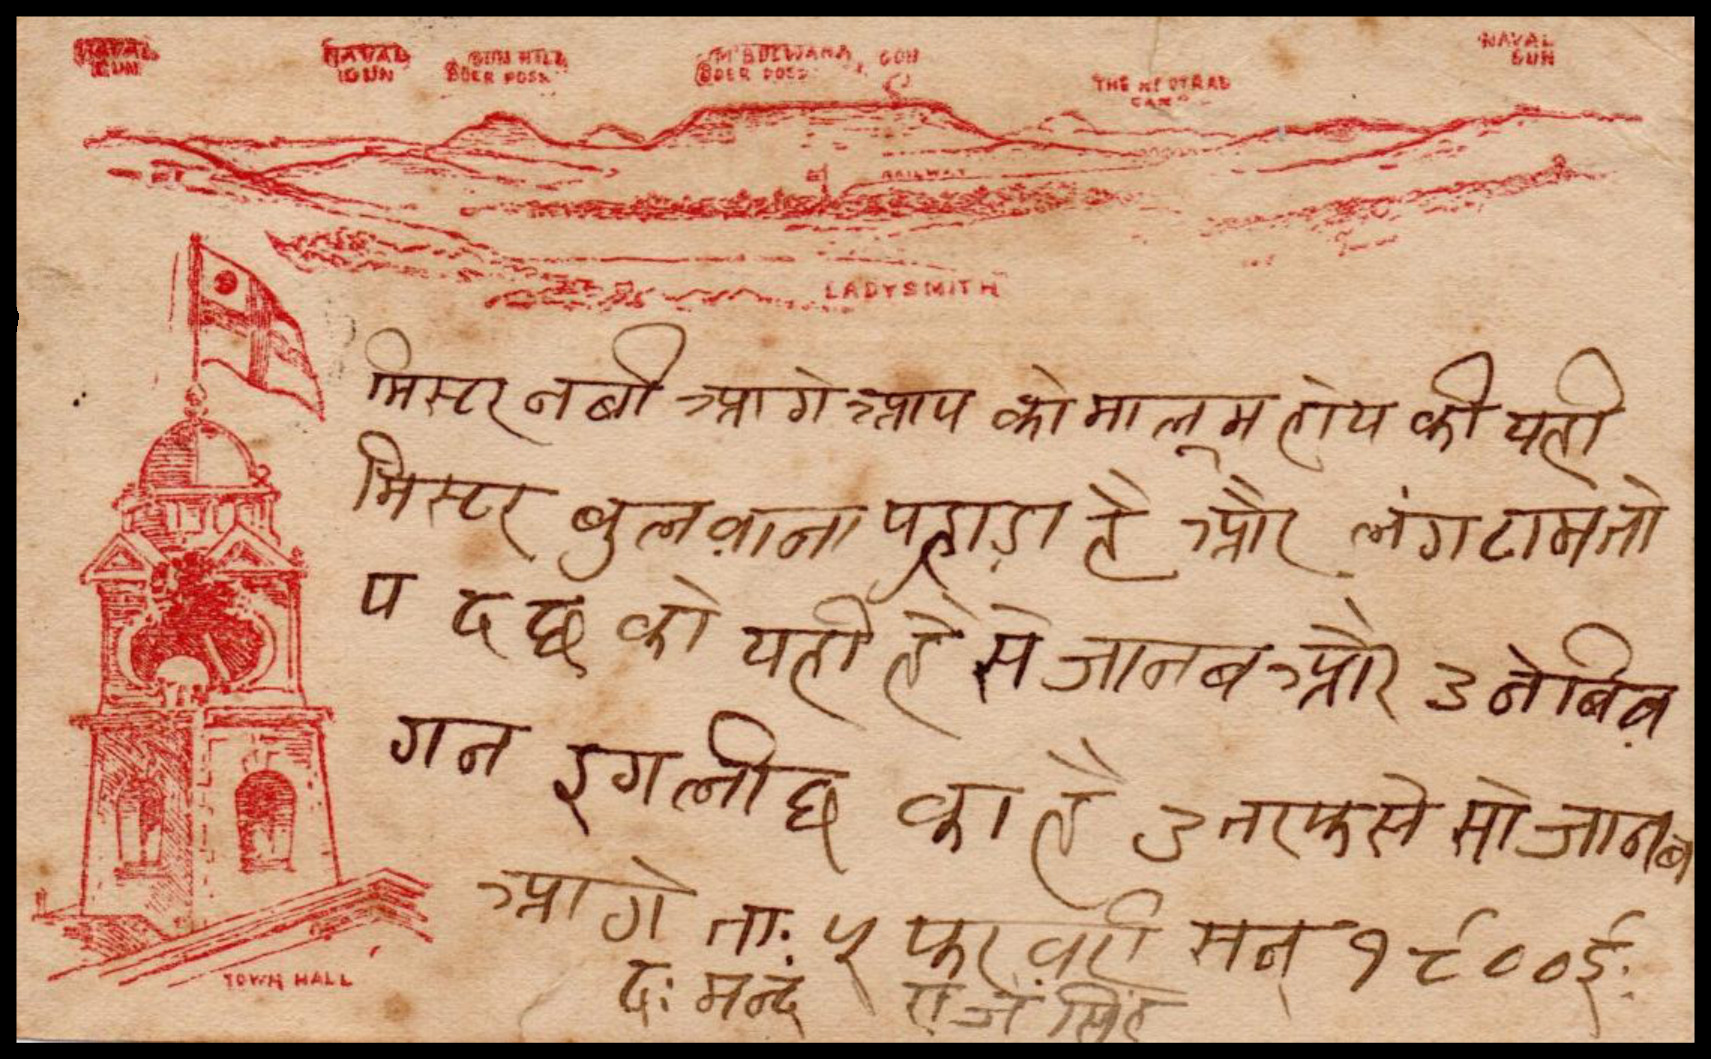 NAVAL GUN
NAVAL GUN
GUN HILL BOER POSN
M'BULWANA, GUN
BOER POSN
THE NEUTRAL CAMP
NAVAL GUN
RAILWAY
LADYSMITH
मिस्टर नबी आगे आप को मालूम होय की यही
मिस्टर बुलवाना पहाड़ा है और लंगटाम तो
प द छ को यही है से जानब और उ ने
गन इगलीछ का है उ तरफ से सो जानब
आगे ता: ५ फरवरी सन् १९००ई:
द:
सिंह
TOWN HALL